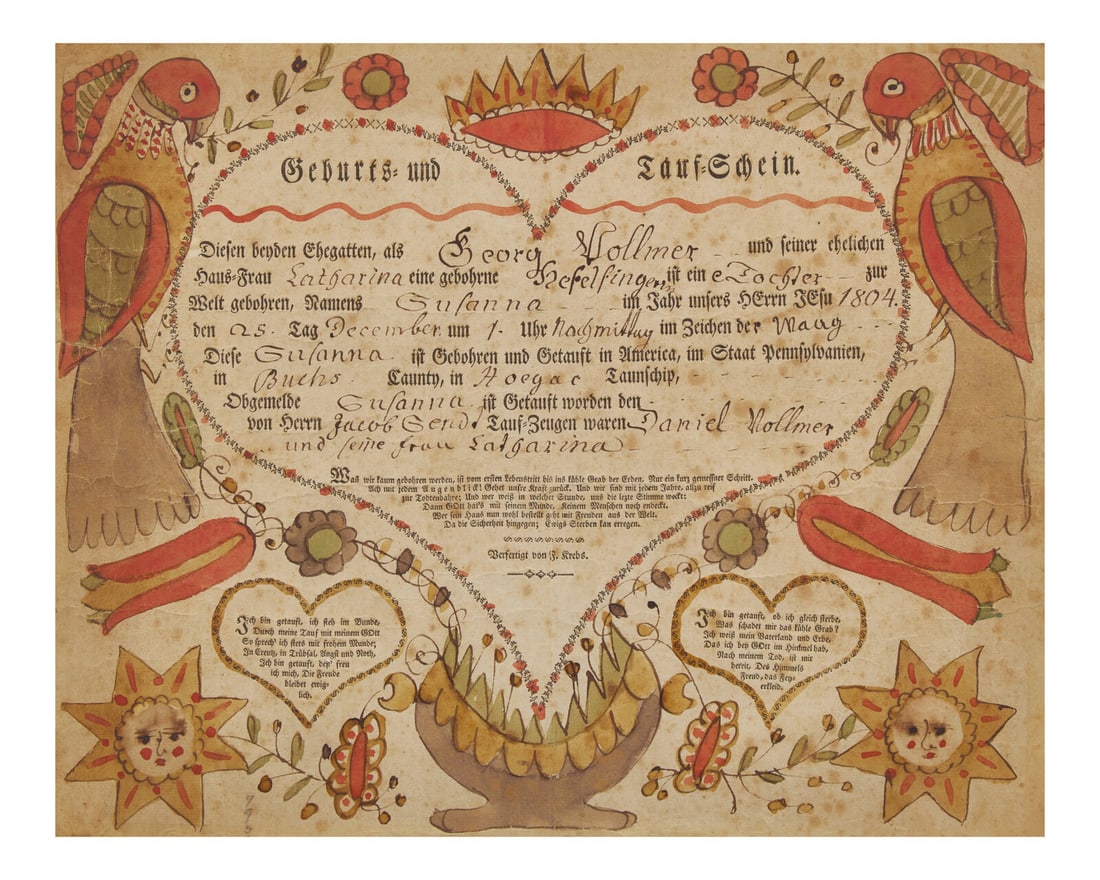 Geburts- und Tauf-Schein.
Diesen beyden Ehegatten, als Georg Vollmer und seiner ehelichen
Haus-Frau Catharina eine gebohrne Hefelfingern ist ein e Tochter zur
Welt gebohren, Namens Susanna im Jahr unsers HErrn JEsu 1804.
den 25. Tag December um 1. Uhr Nachmittag im Zeichen der Waag
Diese Susanna ist Gebohren und Getauft in America, im Staat Pennsylvanien,
in Buchs Caunty, in Taunschip,
Obgemelde Susanna ist Getauft worden den
von Herrn Jacob Send Tauf-Zeugen waren Daniel Vollmer
und seine frau Catharina
Was wir kaum gebohren werden, ist vom ersten Lebenstrit bis ins kühle Grab der Erden. Nur ein kurz gemessner Schritt.
Ach mit jedem Augenblick! Gehet unsre Kraft zurück. Und wir sind mit jedem Jahre, allzu reif
zur Todtenbahre; Und wer weiß in welcher Stunde, uns die lezte Stimme wekt:
Dann GOtt hat's mit seinem Munde, Keinem Menschen noch endeckt.
Wer sein Haus nun wohl bestellt geht mit Freuden aus der Welt.
Da die Sicherheit hingegen; Ewigs Sterben kan erregen.
Verfertigt von F. Krebs.
Ich bin getauft, ich steh im Bunde,
Durch meine Tauf mit meinem GOtt
So sprech' ich stets mit frohem Munde;
In Creutz, in Trübsal, Angst und Noth,
Ich bin getauft, deß' freu
ich mich, Die Freude
bleibet ewig-
lich.
Ich bin getauft, ob ich gleich sterbe,
Was schadet mir das kühle Grab?
Ich weiß mein Vaterland und Erbe,
Das ich bey GOtt im Himmel hab,
Nach meinem Tod, ist mir
bereit, Des Himmels
Freud, das Fey-
erkleid.